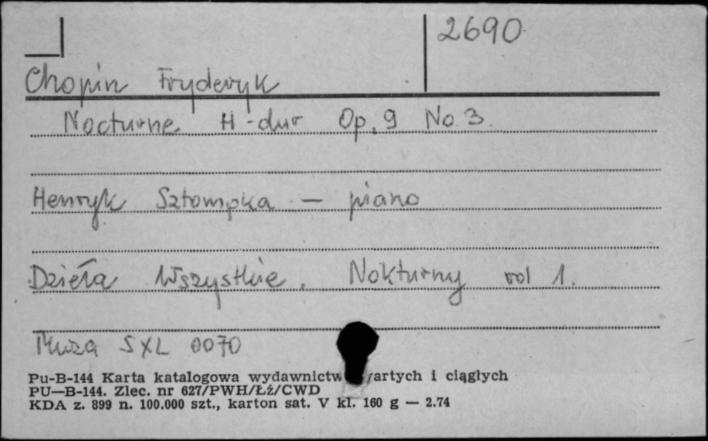 2690
Chopin Fryderyk
Nocturne H-dur Op. 9 No. 3.
Henryk Sztompka — piano
Dzieła Wszystkie. Nokturny vol 1.
Muza SXL 0070
Pu-B-144 Karta katalogowa wydawnictw artych i ciągłych
PU—B-144. Zlec. nr 627/PWH/ŁŹ/CWD
KDA z. 899 n. 100.000 szt., karton sat. V kl. 160 g — 2.74